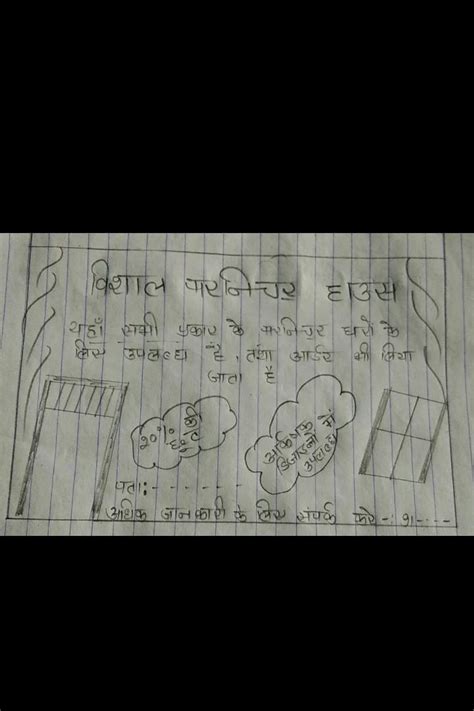 विशाल फरनिचर हाउस
यहाँ सभी प्रकार के फरनिचर घरो के
लिए उपलब्ध है, तथा आर्डर भी लिया
जाता है
20% की
छूट
आकर्षक
डिजाइनो में
उपलब्ध
पता:- - - - - - - -
अधिक जानकारी के लिए संपर्क करे -: 91- - - -